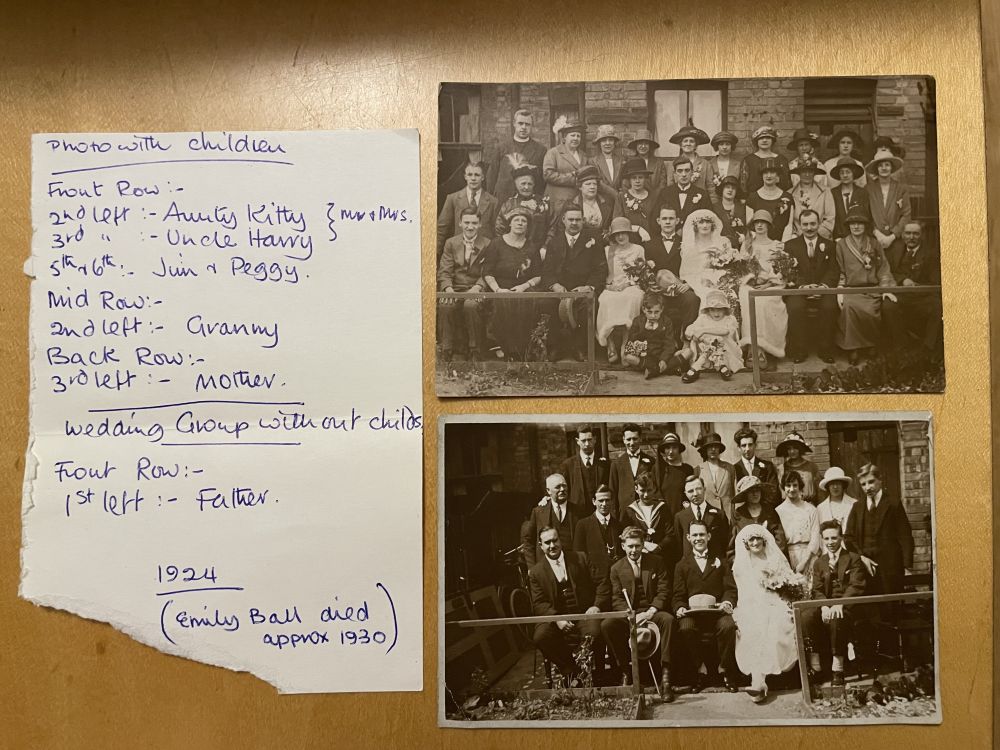 Photo with children
Front Row:-
2nd left :- Aunty Kitty } Mr & Mrs.
3rd " :- Uncle Harry
5th & 6th :- Jim & Peggy.
Mid Row:-
2nd left :- Granny
Back Row:-
3rd left :- Mother.
Wedding Group without childs
Front Row:-
1st left :- Father.
1924
(Emily Ball died
approx 1930)